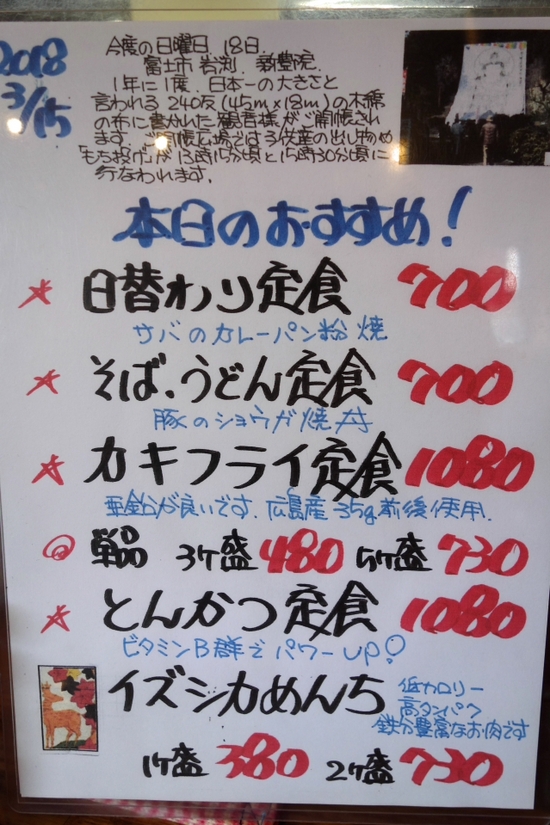 2018
3/15
今度の日曜日、18日、
富士市 岩渕、新豊院、
1年に1度、日本一の大きさと
言われる 240反(45m×18m)の木綿
の布に書かれた観音様がご開帳され
ます。ご開帳広場では3依産の出し物や
「もち投げ」が13時15分頃と15時30分頃に
行なわれます。
本日のおすすめ!
日替わり定食 700
サバのカレーパン粉焼
そば、うどん定食 700
豚のショウガ焼丼
カキフライ定食 1080
亜鉛が良いです、広島産 35g前後使用、
単品 3ヶ盛 480 5ヶ盛 730
とんかつ定食 1080
ビタミンB群でパワーUP!
イズシカめんち
低カロリー
高タンパク
鉄分豊富なお肉です
1ヶ盛 380 2ヶ盛 730